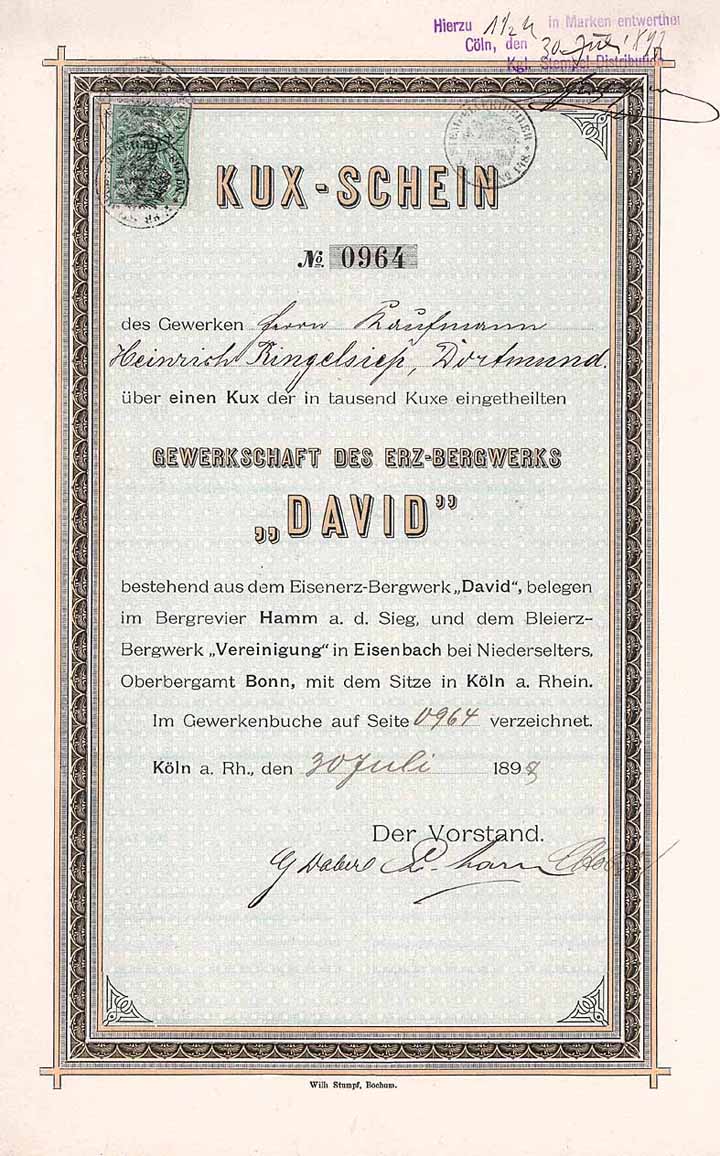 Hierzu 1½ M in Marken entwerthet
Cöln, den 30. Juli 1898
Kgl. Stempel-Distribution
KUX-SCHEIN
№ 0964
des Gewerken Herrn Kaufmann
Heinrich Ringelsiep, Dortmund.
über einen Kux der in tausend Kuxe eingetheilten
GEWERKSCHAFT DES ERZ-BERGWERKS
„DAVID”
bestehend aus dem Eisenerz-Bergwerk „David“, belegen
im Bergrevier Hamm a. d. Sieg, und dem Bleierz-
Bergwerk „Vereinigung“ in Eisenbach bei Niederselters,
Oberbergamt Bonn, mit dem Sitze in Köln a. Rhein.
Im Gewerkenbuche auf Seite 0964 verzeichnet.
Köln a. Rh., den 30 Juli 1898
Der Vorstand.
Wilh Stumpf, Bochum.